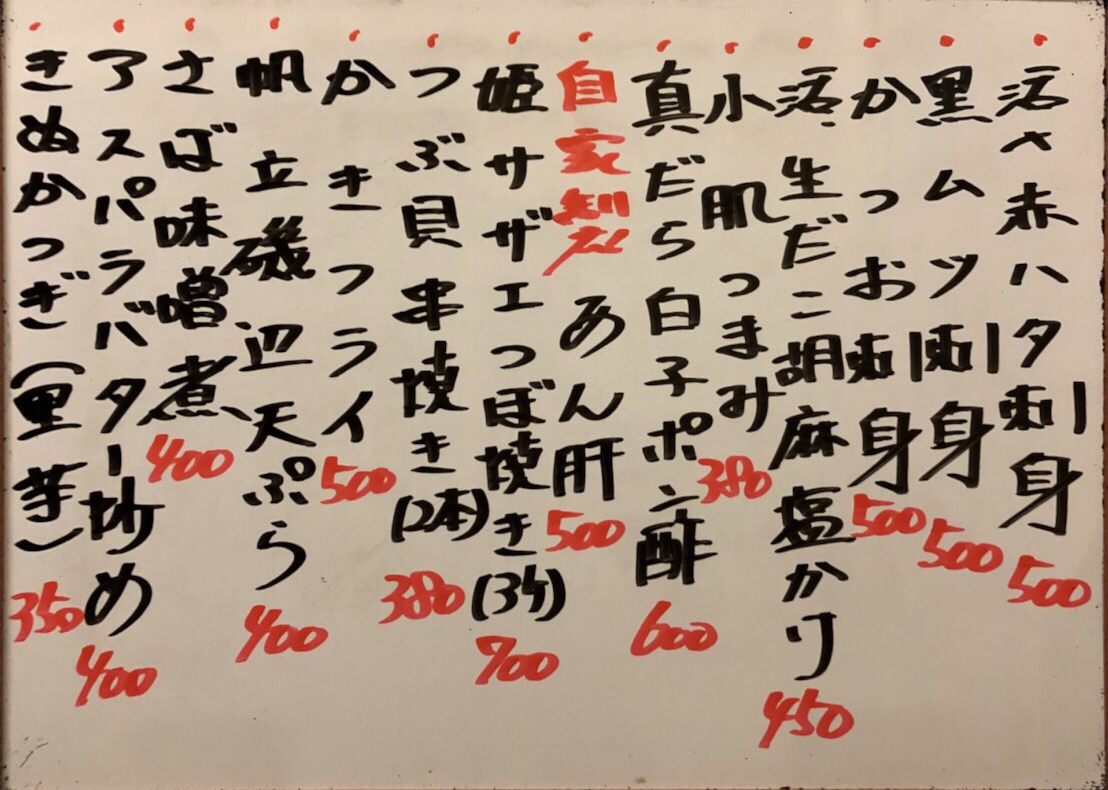 活〆赤ハタ刺身 500
黒ムツ刺身 500
かつお刺身 500
活生だこ胡麻塩かけ 450
小肌つまみ 380
真だら白子ポン酢 600
自家製 あん肝 500
姫サザエつぼ焼き(3ケ) 700
つぶ貝串焼き(2本) 380
かきフライ 500
帆立磯辺天ぷら 400
さば味噌煮 400
アスパラバター炒め 400
きぬかつぎ(里芋) 350